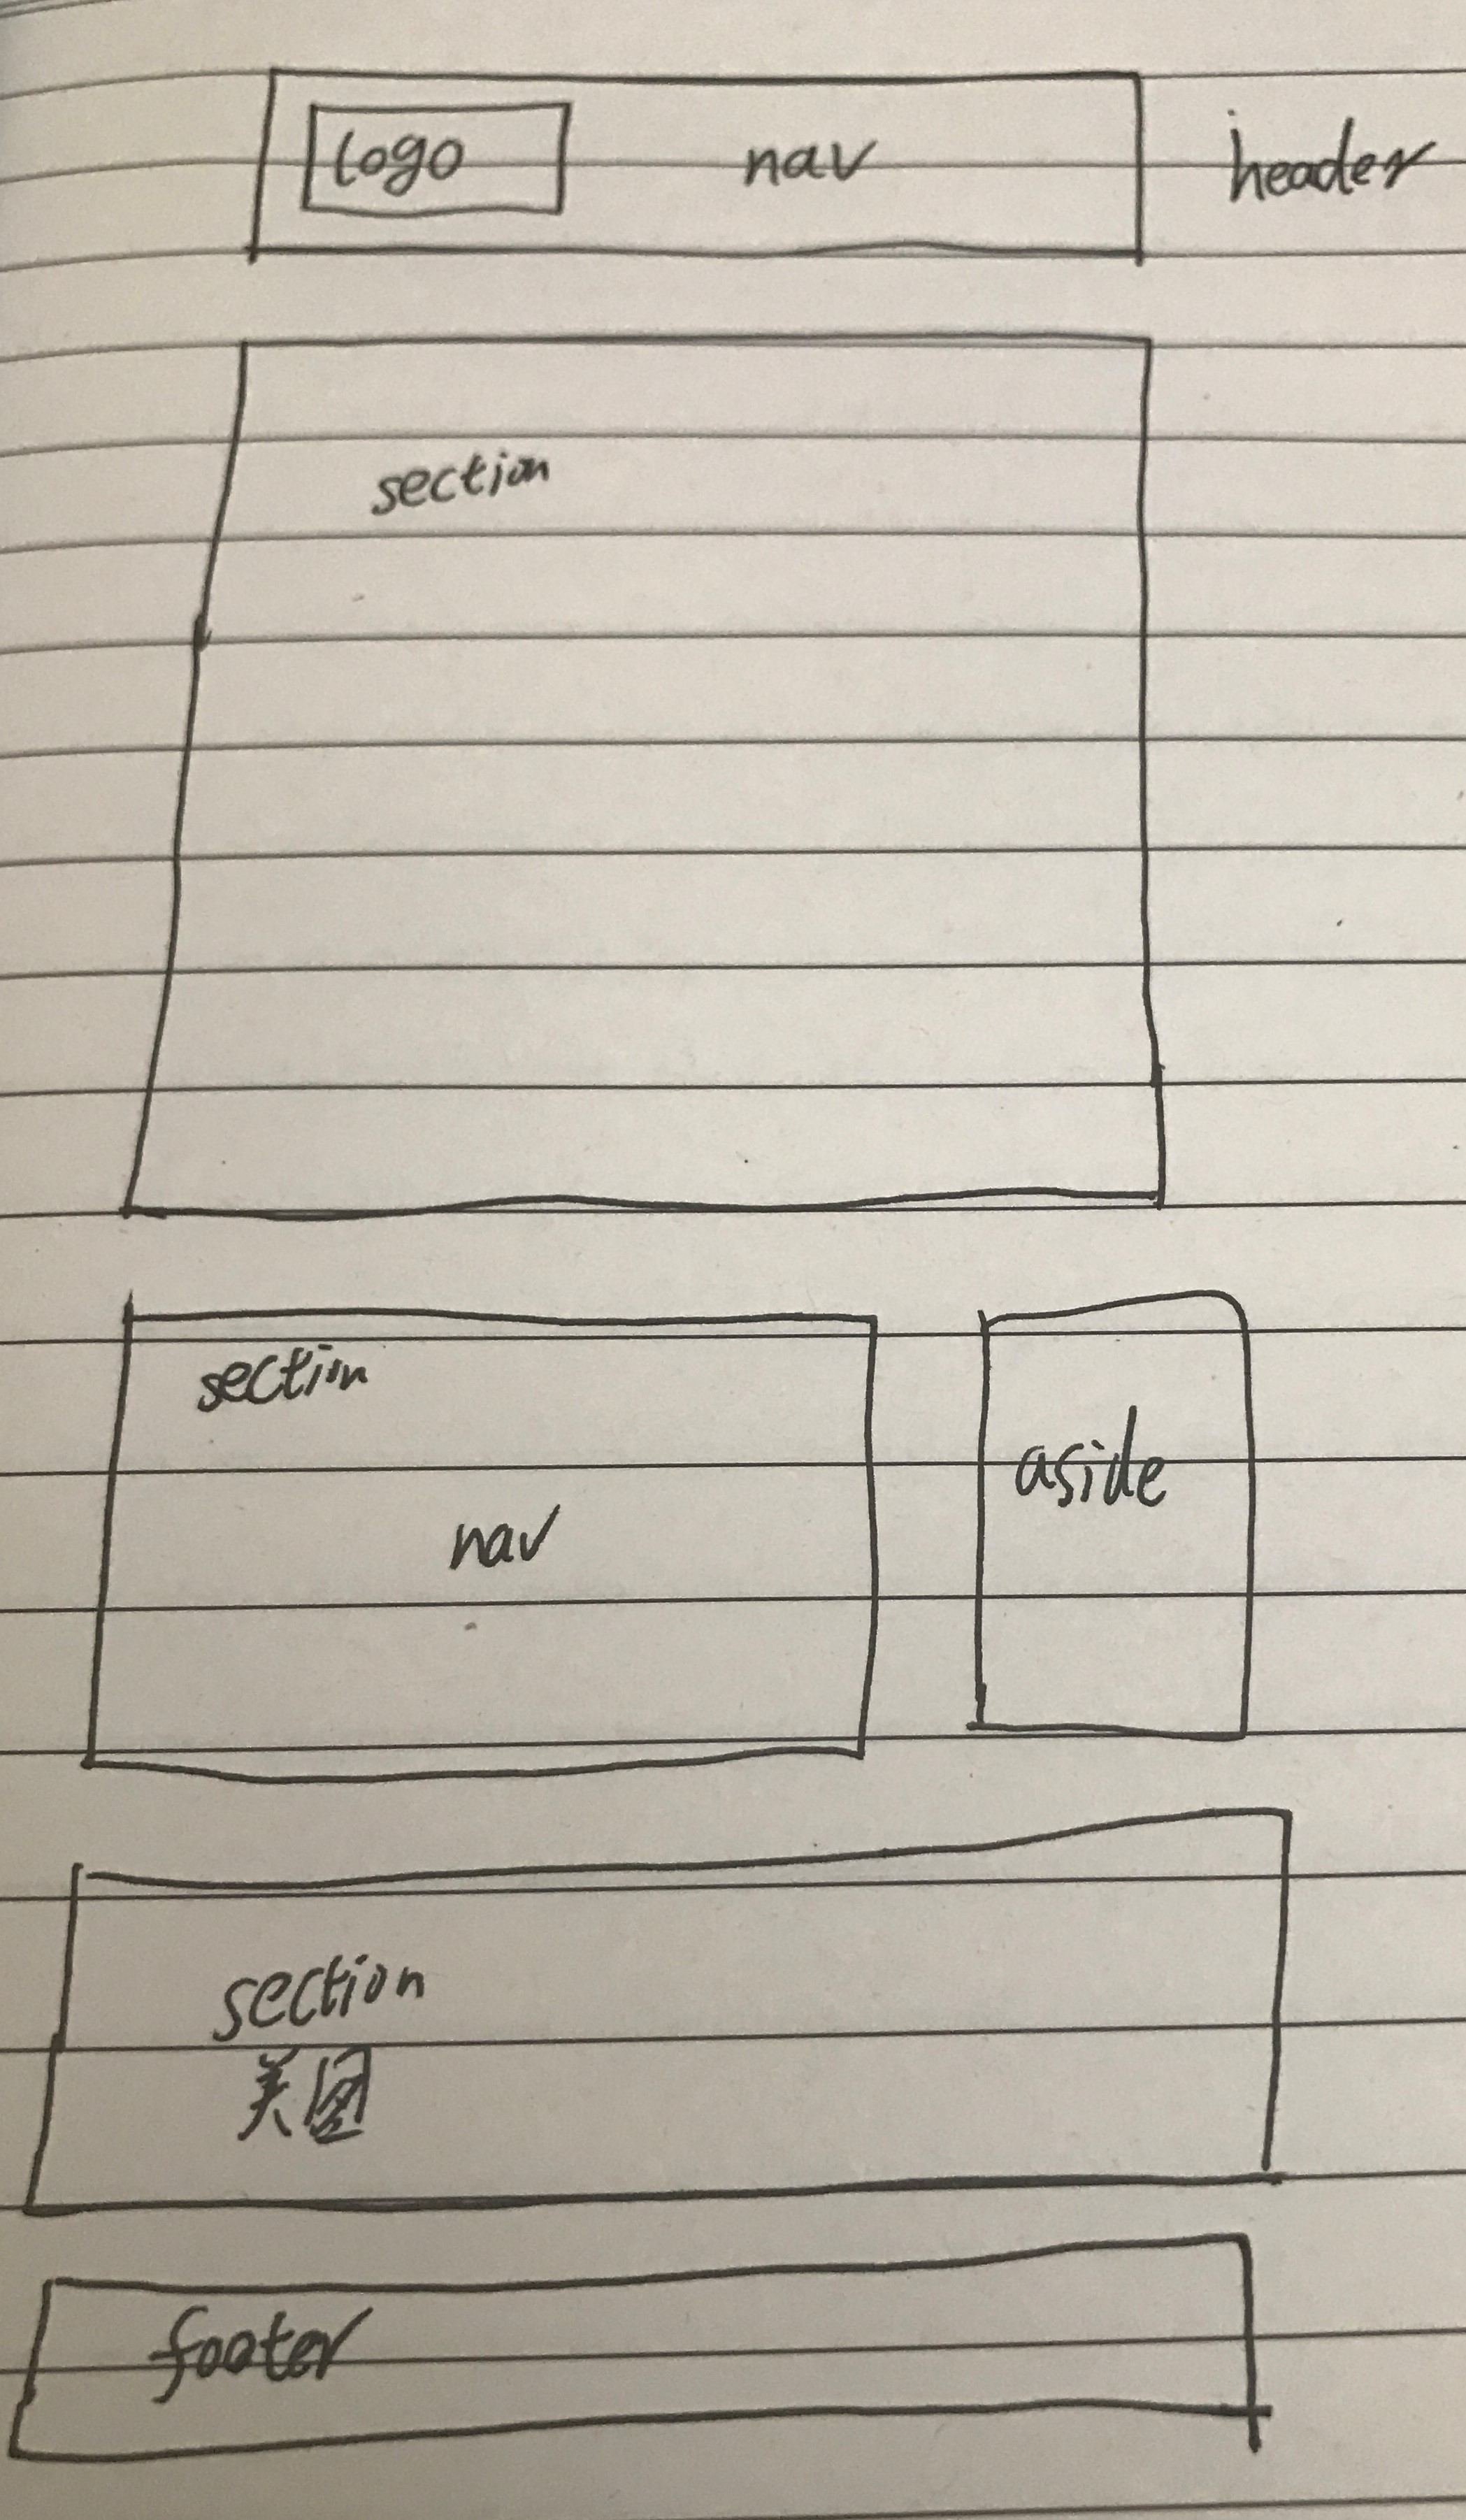 logo nav header
section
section
nav
aside
section
美图
footer